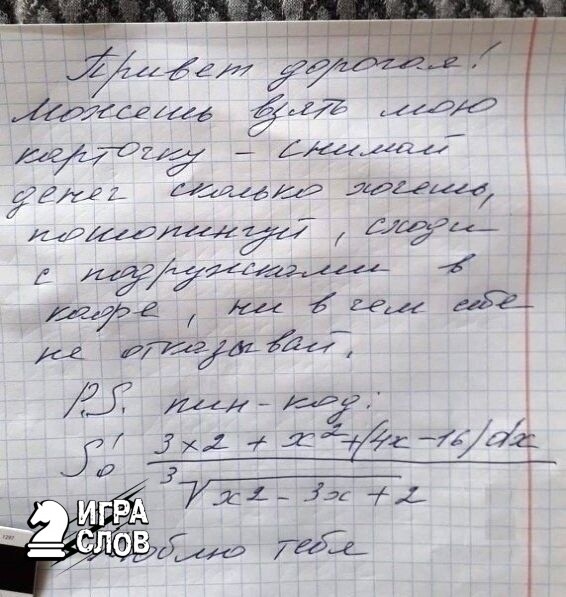 Привет дорогая!
Можешь взять мою
карточку – снимай
денег сколько хочешь,
пошопингуй, сходи
с подружками в
кафе, ни в чем себе
не отказывай.
P.S. пин-код:
∫₀¹ 3x2 + x² + (4x – 16) dx
∛(x2 – 3x + 2)
Люблю тебя
ИГРА
СЛОВ
1297